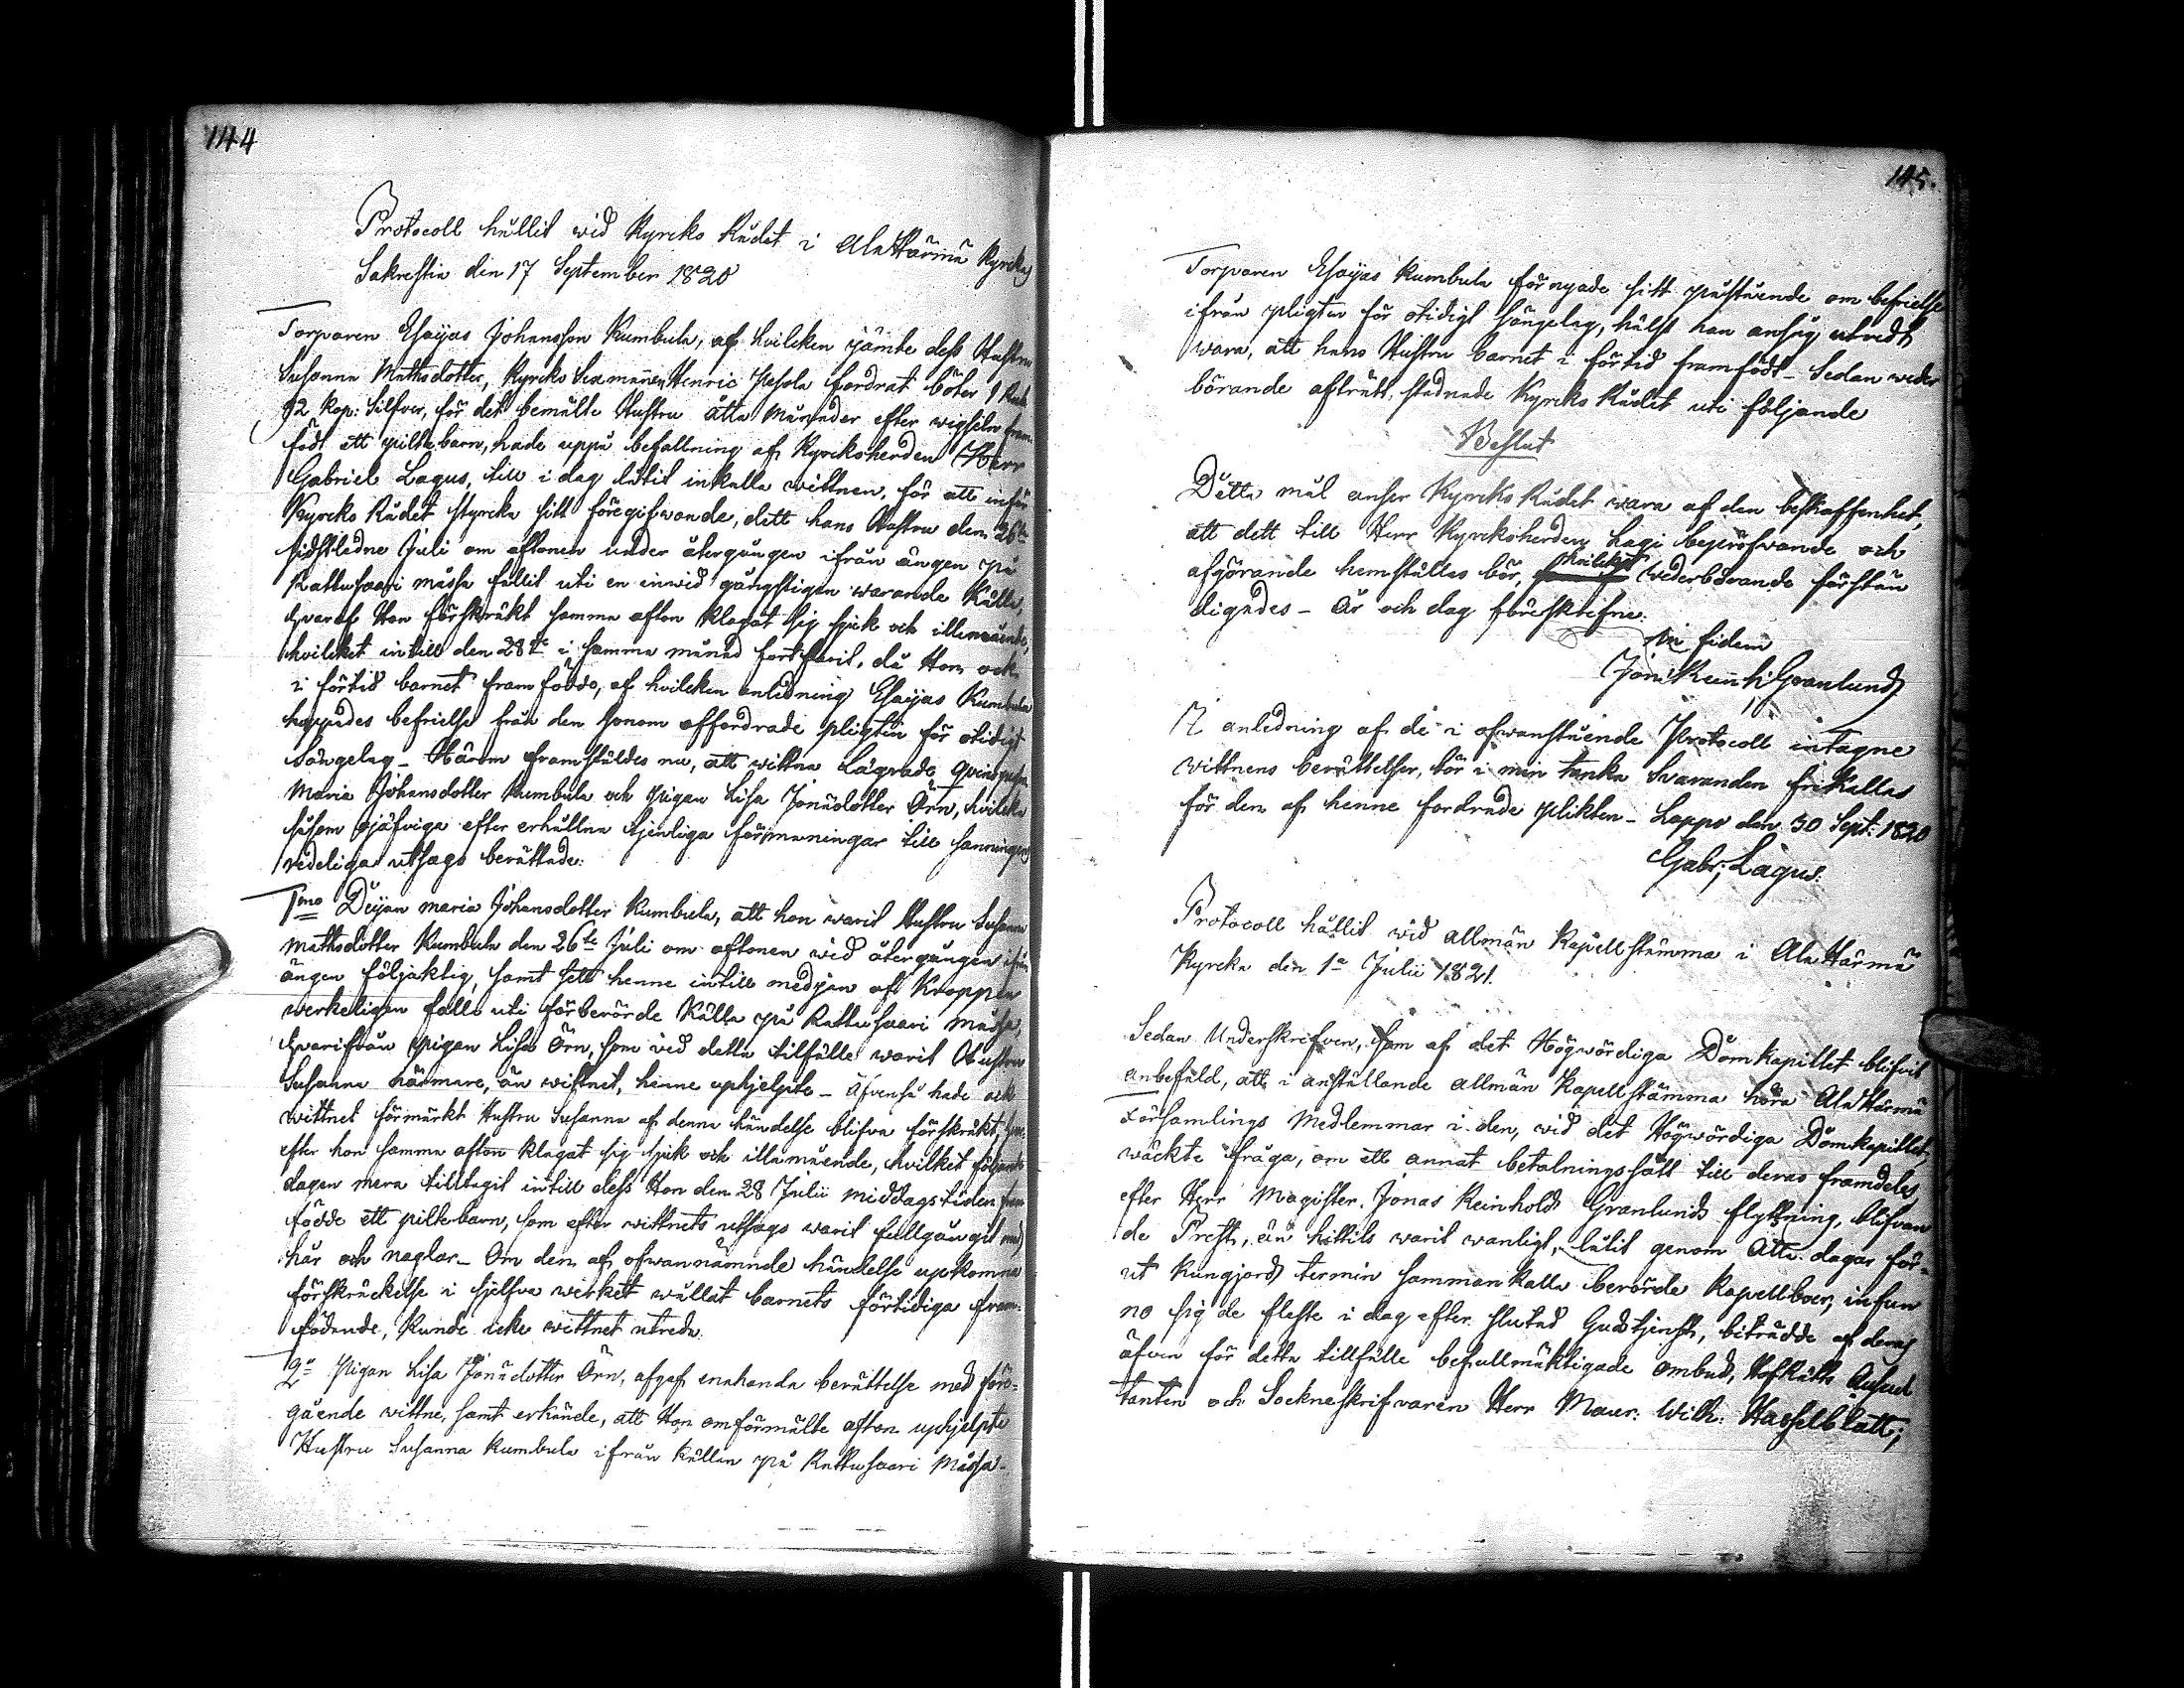 144
Protocoll hållit wid Kyrcko Rådet i AlaHärmä Kyrckas
Sakrestia den 17 September 1820
Torparen Esaijas Johansson Kumbula, af hvilcken jämte dess Hustru
Susanna Mathsdotter, Kyrcko Sexmannen Henric Pesola fordrat böter 1 Rub
92 kop: Silfver, för det bemälte Hustru åtta månader efter wigseln fram
födt ett piltebarn, hade uppå befallning af Kyrckoherden Herr
Gabriel Lagus, till i dag låtit inkalla wittnen, för att inför
Kyrcko Rådet styrcka sitt föregifwande, dett hans Hustru den 26te
sidstledne Julii om aftonen under återgången ifrån ängen på
Rattusaari måssa fallit uti en inwid gångstigen warande Källa,
hvaraf Hon förskräkt samma afton klagat sig sjuk och illamående,
hvilcket intill den 28de i samma månad fortfarit, då Hon ock
i förtid barnet framfödde, af hvilcken anledning Esaijas Kumbula
hoppades befrielse från den honom affordrade pligten för otidigt
Sängelag_ Härom framstäldes nu, att wittna Lägrade Qvinspersonen
Maria Johansdotter Kumbula och pigan Lisa Jonædotter Örn, hvilcka
såsom ojäfviga efter erhållna tjenliga förmaningar till sanningens
redeliga utsago berättade:
1mo Deijan Maria Johansdotter Kumbula, att hon warit Hustru Susanna
Mathsdotter Kumbula den 26te Juli om aftonen wid återgången ifrån
ängen följaktig, samt sett henne intill medjan af Kroppen
werkeligen falla uti förberörde Källa på Rattusaari måssa,
hvarifrån pigan Lisa Örn, som wid detta tilfälle warit Hustru
Susanna närmare, än wittnet, henne uphjelpte_ Äfvenså hade ock
wittnet förmärkt Hustru Susanna af denna händelse blifva förskräkt,
efter hon samma afton klagat sig sjuk och illamående, hvilket följande
dagen mera tilltagit intill dess Hon den 28 Julii middagstiden fram
födde ett piltebarn, som efter wittnets utsago warit fullgångit med
hår och naglar_ Om den af ofwannämnde händelse upkomna
förskräckelse i sjelfva werket wållat barnets förtidiga fram-
födande, Kunde icke wittnet utreda.
2o Pigan Lisa Jonædotter Örn, afgaf enahanda berättelse med före-
gående wittne, samt erkände, att Hon omförmälte afton uphjelpte
Hustru Susanna Kumbula ifrån Källan på Rattusaari Måssa_
145.
Torparen Esaijas Kumbula förnyade sitt påstående om befrielse
ifrån pligten för otidigt sängelag, hälst han ansåg utredt
wara, att hans Hustru barnet i förtid framfödt_ Sedan weder
börande afträtt, stadnade Kyrcko Rådet uti följande
Beslut
Detta mål anser Kyrcko Rådet wara af den beskaffenhet,
att dett till Herr Kyrckoherden Lagi bepröfwande och
afgörande hemställas bör, hvilcket wederbörande förstän
digades_ År och dag föreskrifne.
In fidem
Jon: Reinh: Granlund
I anledning af de i ofwanstående Protocoll intagne
Wittnens berättelser, bör i min tanka Swaranden frikallas
för den af henne fordrade plikten_ Lappo den 30 Sept: 1820
Gabr; Lagus.
Protocoll hållit wid allmän Kapellstämma i AlaHärmä
Kyrcka den 1a Julii 1821.
Sedan Underskrifven, som af det Högwördiga Domkapitlet blifvit
anbefald, att i anställande allmän Kapellstämma höra AlaHärmä
Församlings Medlemmar i den, wid det Högwördiga Domkapitlet,
wäckte fråga, om ett annat betalningssätt till deras framdeles
efter Herr Magister Jonas Reinhold Granlunds flyttning, blifvan
de Prest, än hittils warit wanligt, låtit genom åtta dagar för-
ut kungjord termin sammankalla berörde Kapellboer, infun
no sig de fleste i dag efter slutad Gudstjenst, biträdde af deras
äfven för detta tillfälle befullmäktigade ombud, HofRätts Auscul
tanten och Sockneskrifvaren Herr Maur: Wilh: Hasselblatt;